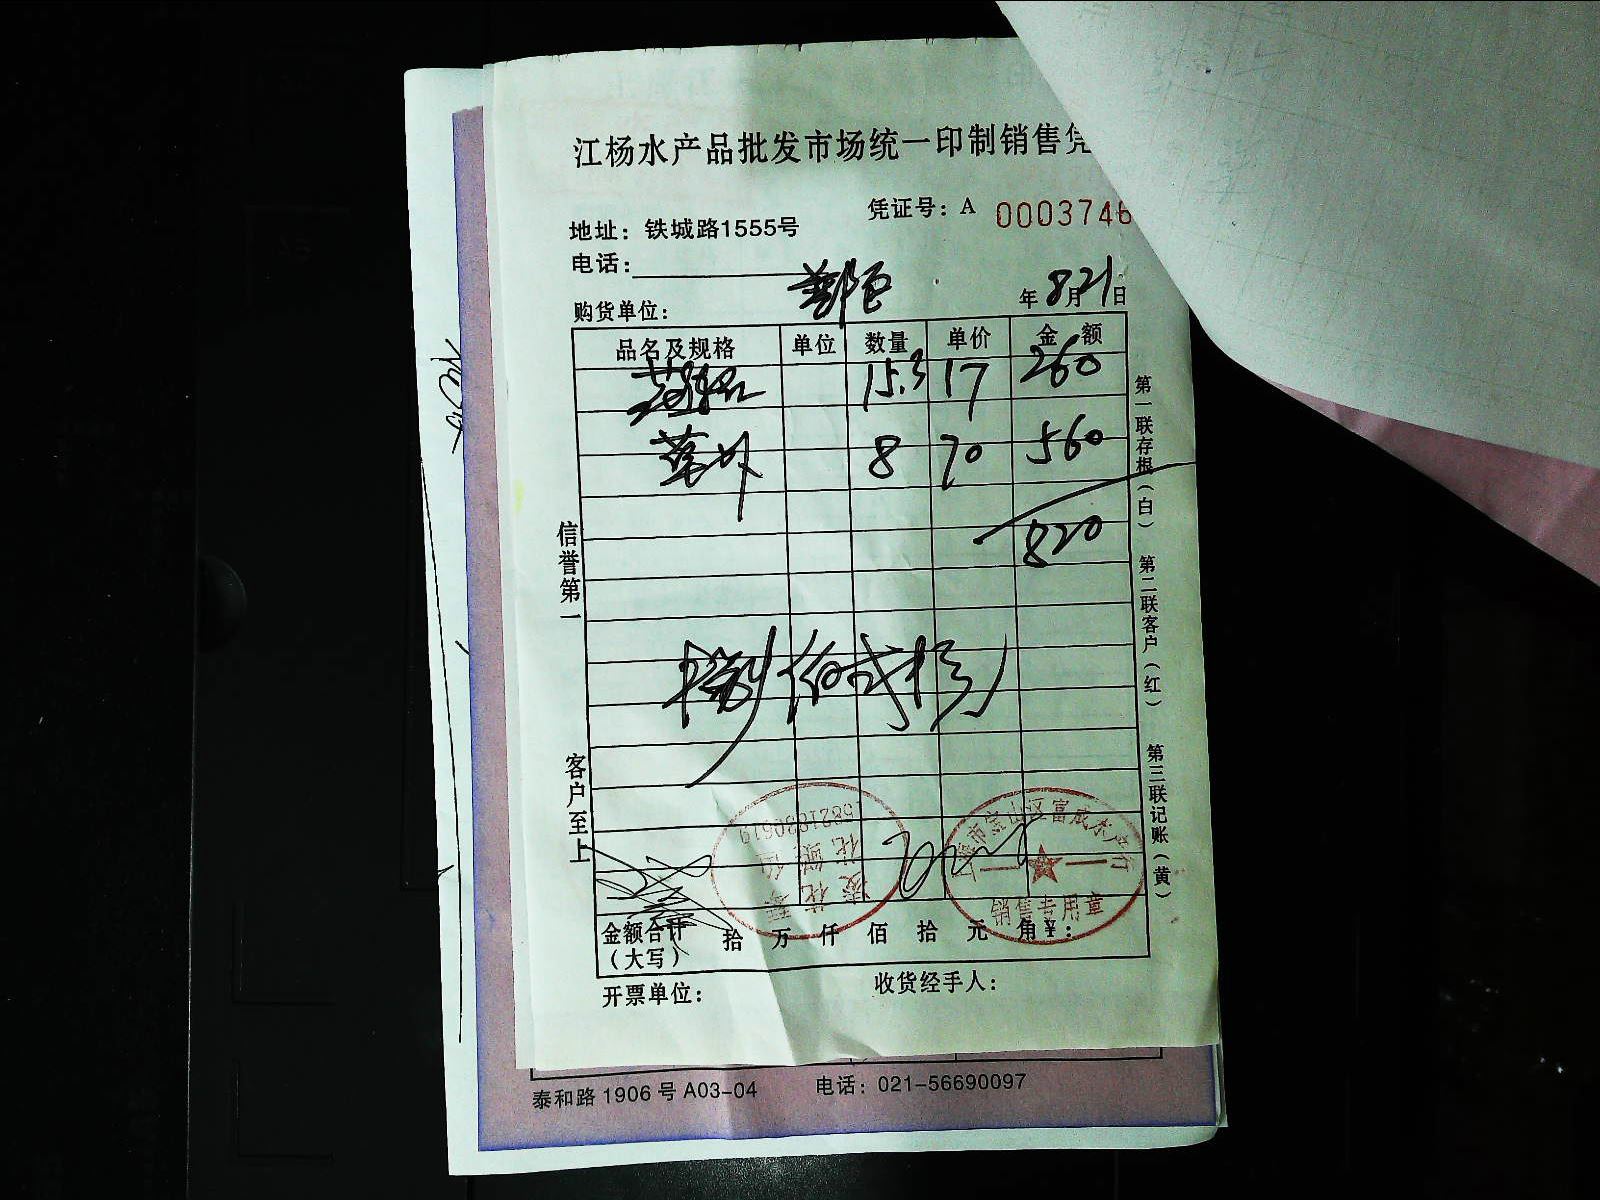 江杨水产品批发市场统一印制销售凭
凭证号：A 0003746
地址：铁城路1555号
电话：
购货单位：
年8月21日
品名及规格 单位 数量 单价 金额
15.3 17 260
8 70 560
820
捌佰贰拾
信誉第一
客户至上
第一联存根（白） 第二联客户（红） 第三联记账（黄）
上海市宝山区富成水产行
销售专用章
金额合计（大写） 拾 万 仟 佰 拾 元 角 ¥：
开票单位：
收货经手人：
泰和路 1906 号 A03-04 电话：021-56690097